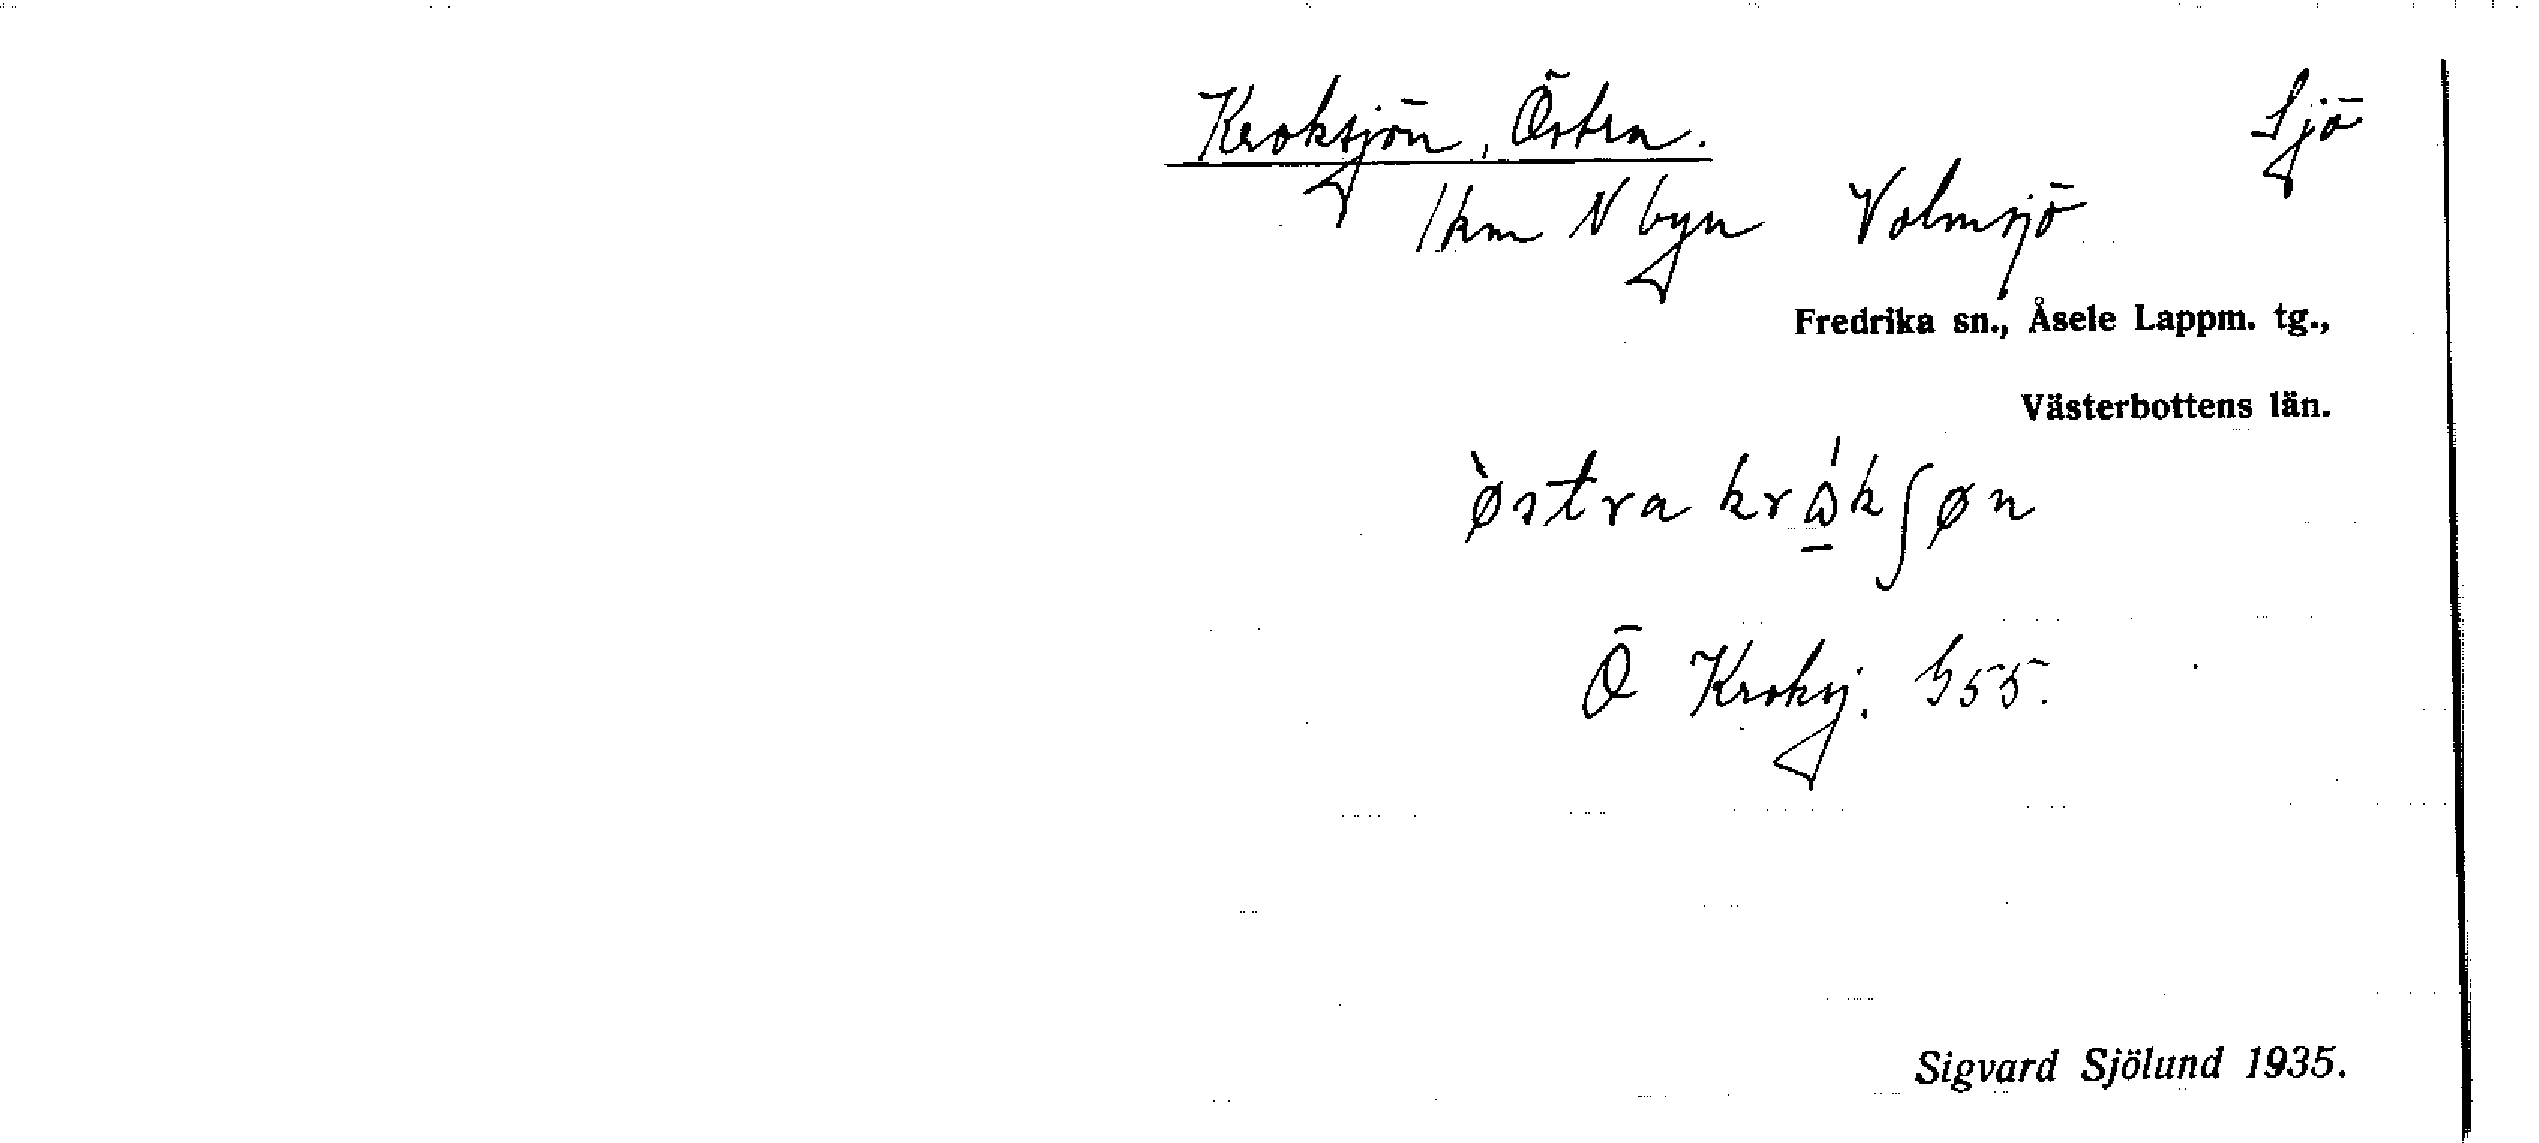 Kroksjön, Östra. Sjö
1 km N byn Volmsjö
Fredrika sn., Åsele Lappm. tg.,
Västerbottens län.
ø̀stra krώ̲kʃøn
Ö Kroksj. G55.
Sigvard Sjölund 1935.